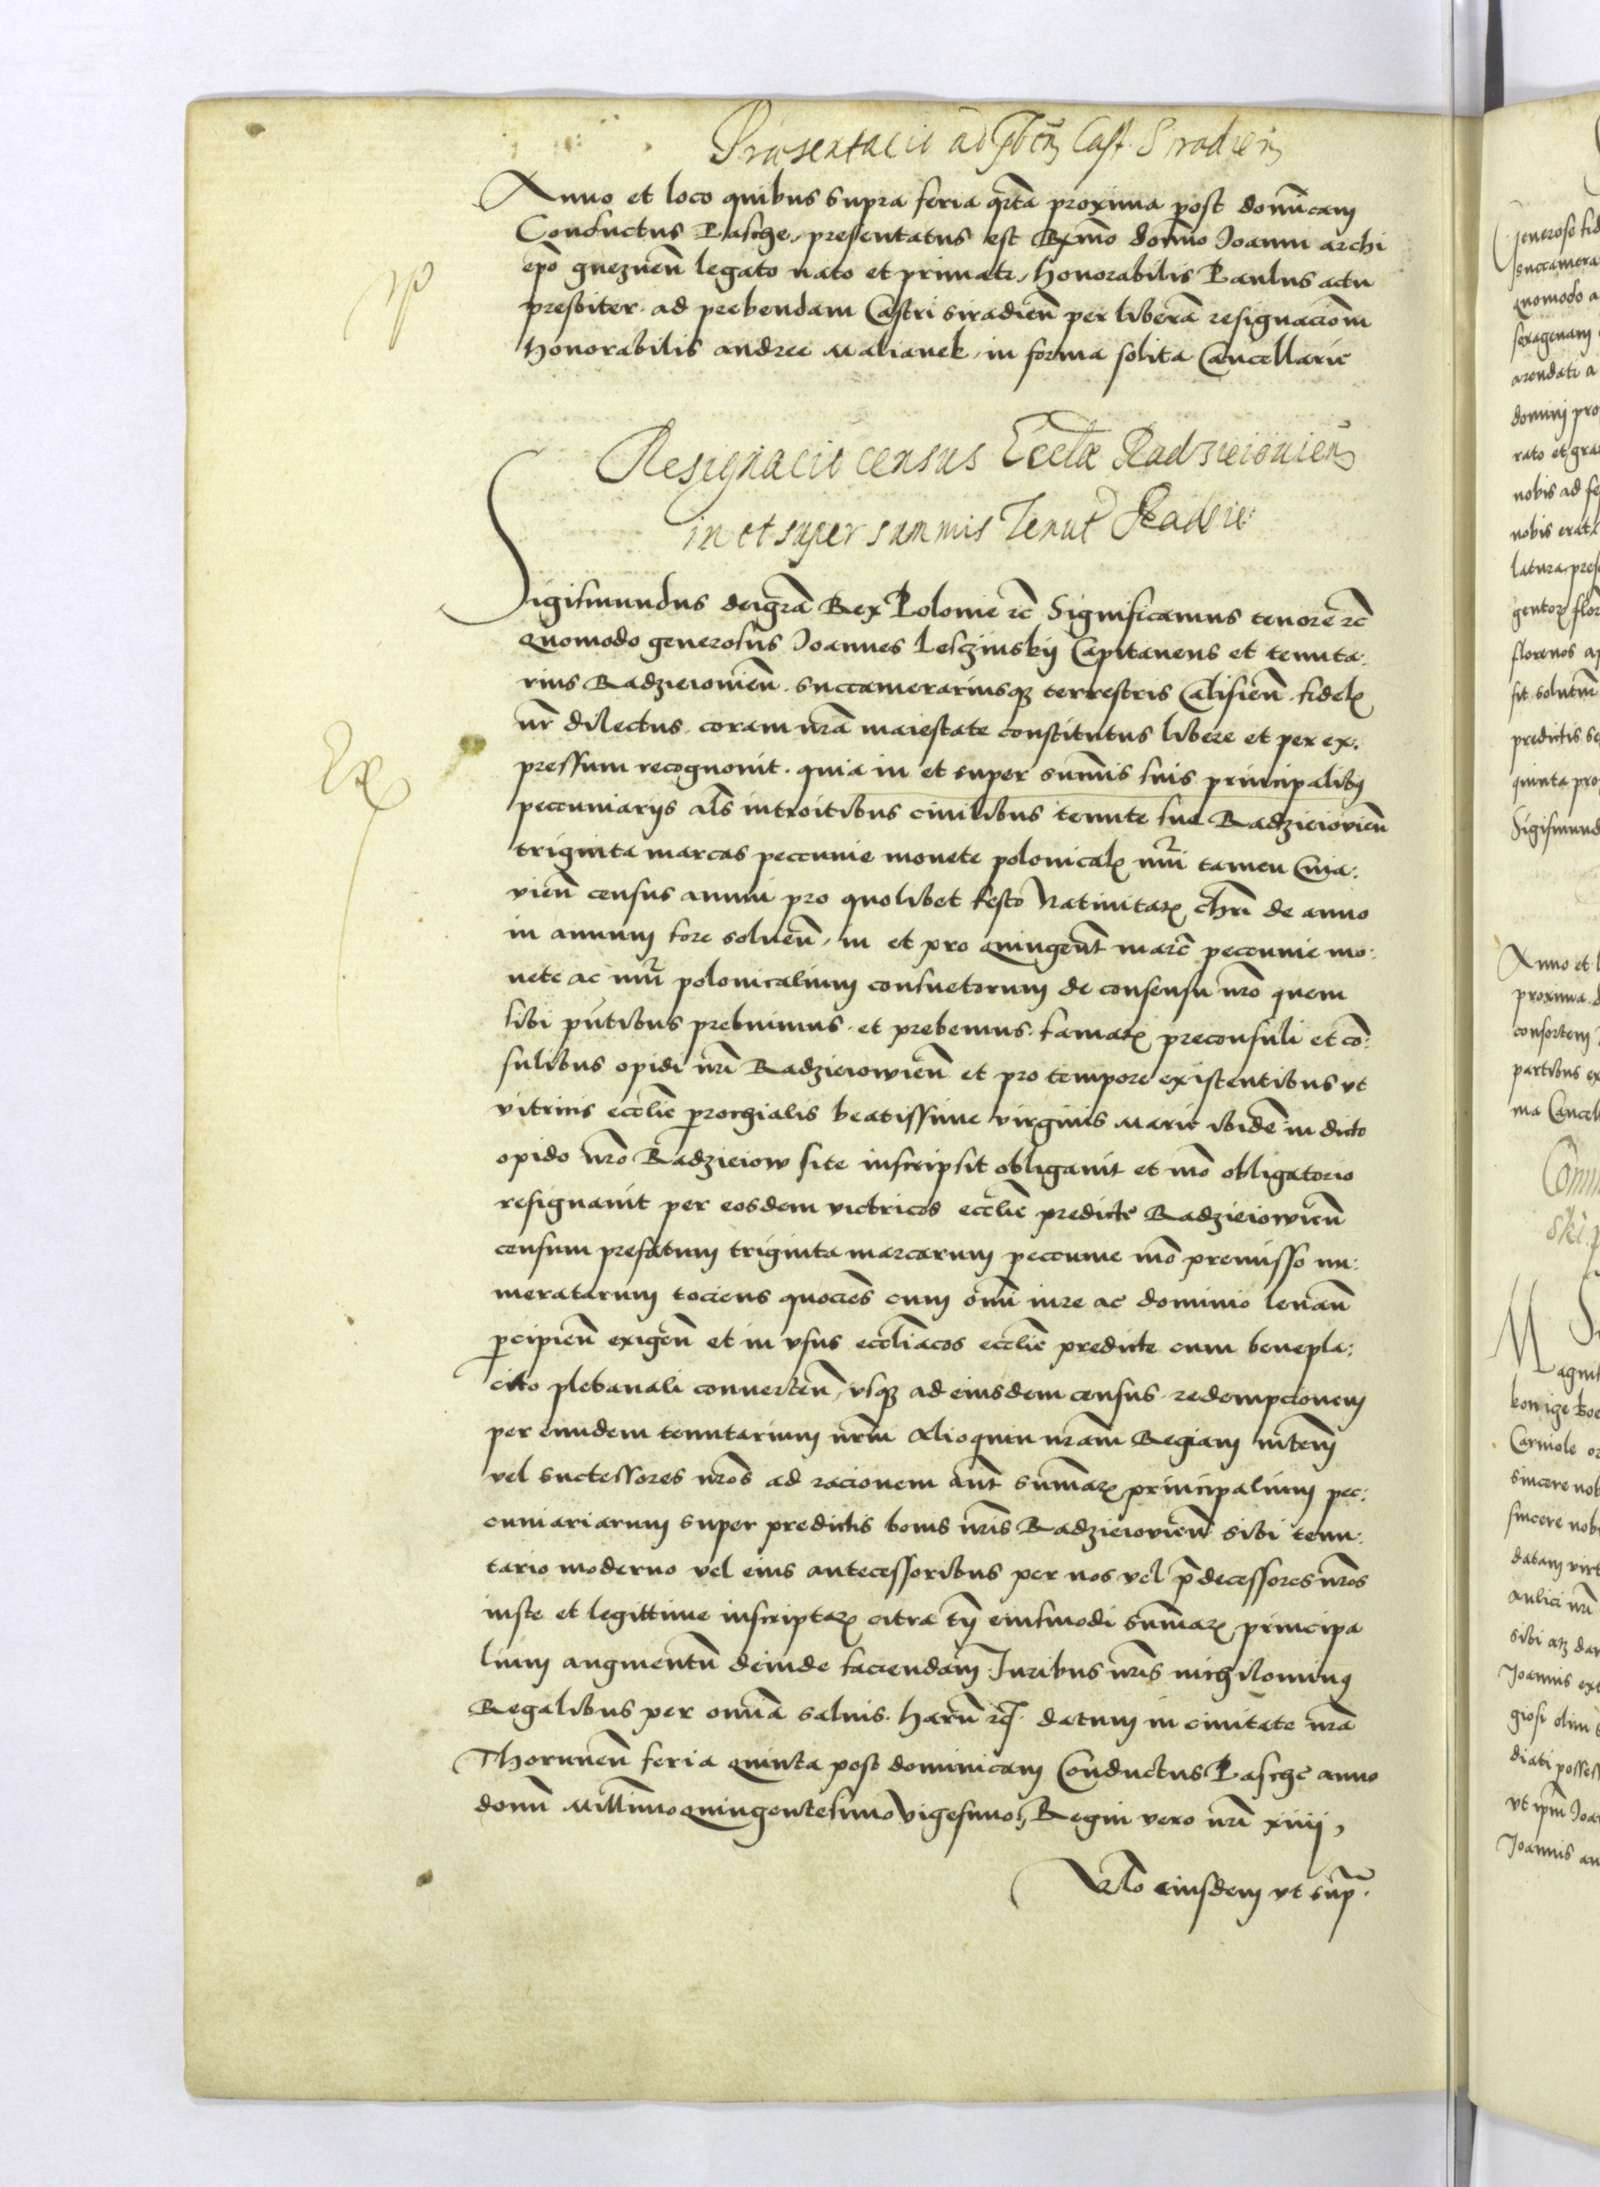 Præsentacio ad Pbēn Cast. Siradień
Anno et loco quibus supra feria qrta proxima post dominicam
Conductus Pasche, presentatus est Rxmo domino Joanni archi
epō gneznen̄ legato nato et primati, honorabilis Paulus actu
presbiter ad prebendam Castri siradien̄ per liberā resignacionē
honorabilis andree Malianek, in forma solita Cancellarie
Resignacio census Eccłæ Radzieiouień
in et super summis Tenut Radzie:
Sigismundus dei gr̄a Rex Polonie rc̄ Significamus tenore rc̄
Quomodo generosus Joannes Lesczinskij Capitaneus et tenuta:
rius Radzieiowien̄ succamerariusq3 terrestris Calisien̄ fidel
nr̄ dilectus, coram nr̄a maiestate constitutus libere et per ex:
pressum recognouit. quia in et super sum̄is suis principalib3
peccuniarijs al̄s introitibus ciuilibus tenute sue Radzieiouien̄
triginta marcas peccunie monete polonical nūi tamen Cuia:
uien̄ census annui pro quolibet festo Natiuitat chrī de anno
in annum fore soluen̄, in et pro quingent marc̄ peccunie mo:
nete ac nūi polonicalium consuetorum de consensu nr̄o quem
sibi pn̄tibus prebuimus et prebemus famat preconsuli et cō:
sulibus opidi nr̄i Radzieiowien̄ et pro tempore existentibus vt
vitricis eccl̄ie parrochialis beatissime virginis Marie ibidē in dicto
opido nr̄o Radzieiow site inscripsit obligauit et mō obligatorio
resignauit per eosdem victricos eccl̄ie predicte Radzieiowien̄
censum prefatum triginta marcarum peccunie mō premisso nu:
meratarum tociens quocies cum om̄i iure ac dominio leuan̄
p̱cipien̄ exigen̄ et in vsus eccl̄iacos eccl̄ie predicte cum benepla:
cito plebanali conuerten̄, vsq3 ad eiusdem census redempcionem
per eundem tenutarium nr̄m Alioquin nr̄am Regiam mtem
vel successores nr̄os ad racionem ant sum̄ar principalium pec:
cuniariarum super predictis bonis nr̄is Radzieiowien̄ sibi tenu:
tario moderno vel eius antecessoribus per nos vel p̄decessores nr̄os
iuste et legittime inscriptar citra tn̄ eiusmodi sum̄ar principa
lium augmentū deinde faciendam Juribus nr̄is nichilominus
Regalibus per omnia saluis. Harū rc̄. datum in ciuitate nr̄a
Thorunen̄ feria quinta post dominicam Conductus Pasche anno
domī Millimo quingentesimo vigesimo, Regni vero nr̄i xiiij,
Rlo eiusdem vt sup̄.